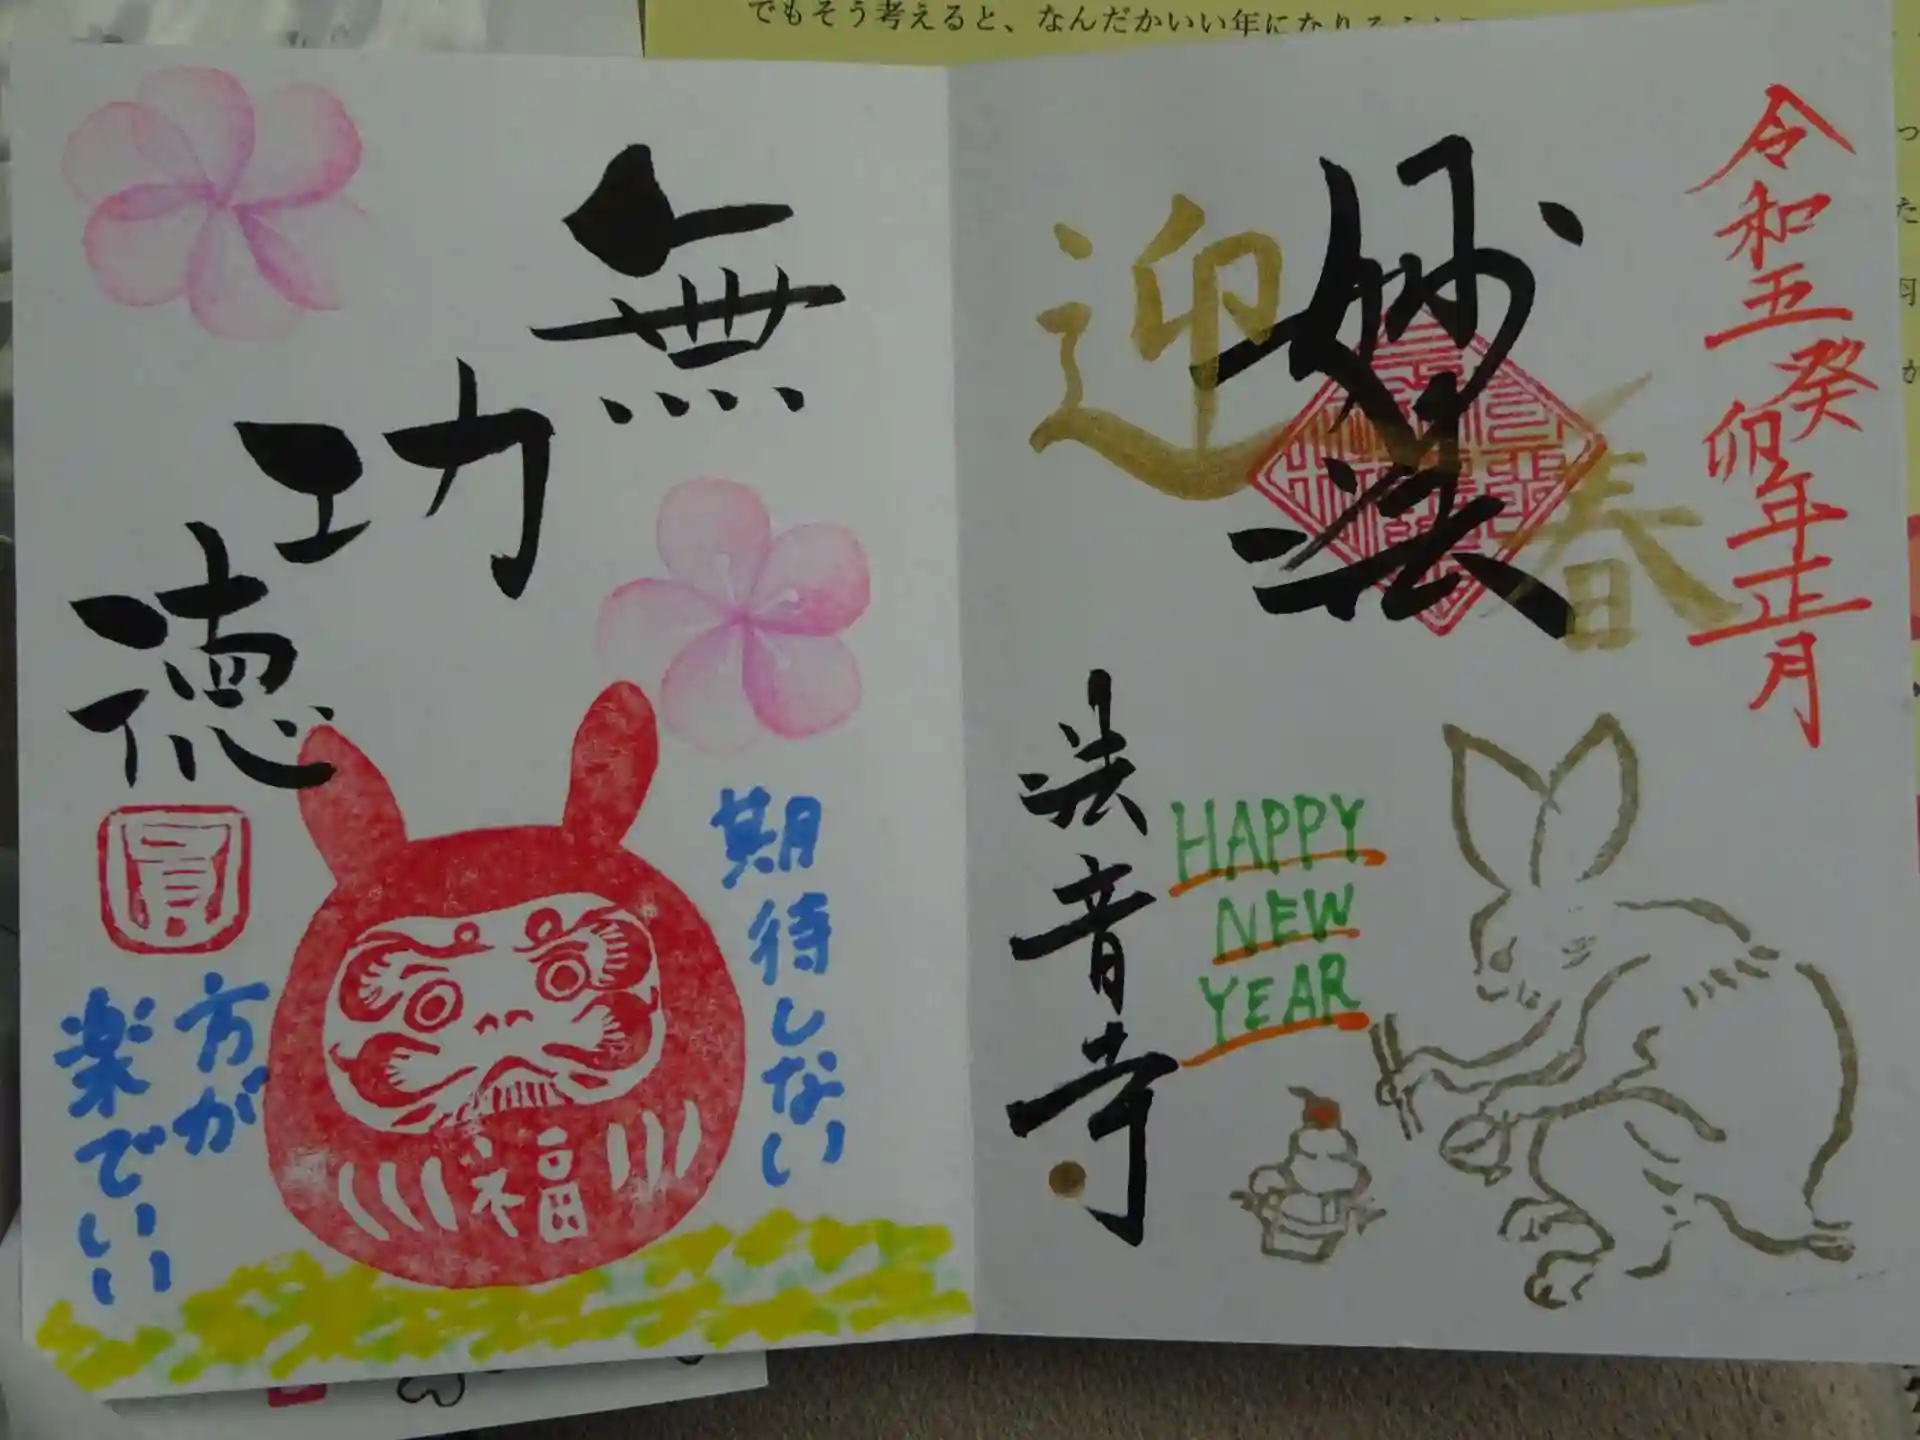 でもそう考えると、なんだかいい年になり
令和五癸卯年正月
妙法
迎春
法音寺
HAPPY
NEW
YEAR
無
功
徳
期待しない
方が
楽でいい
福